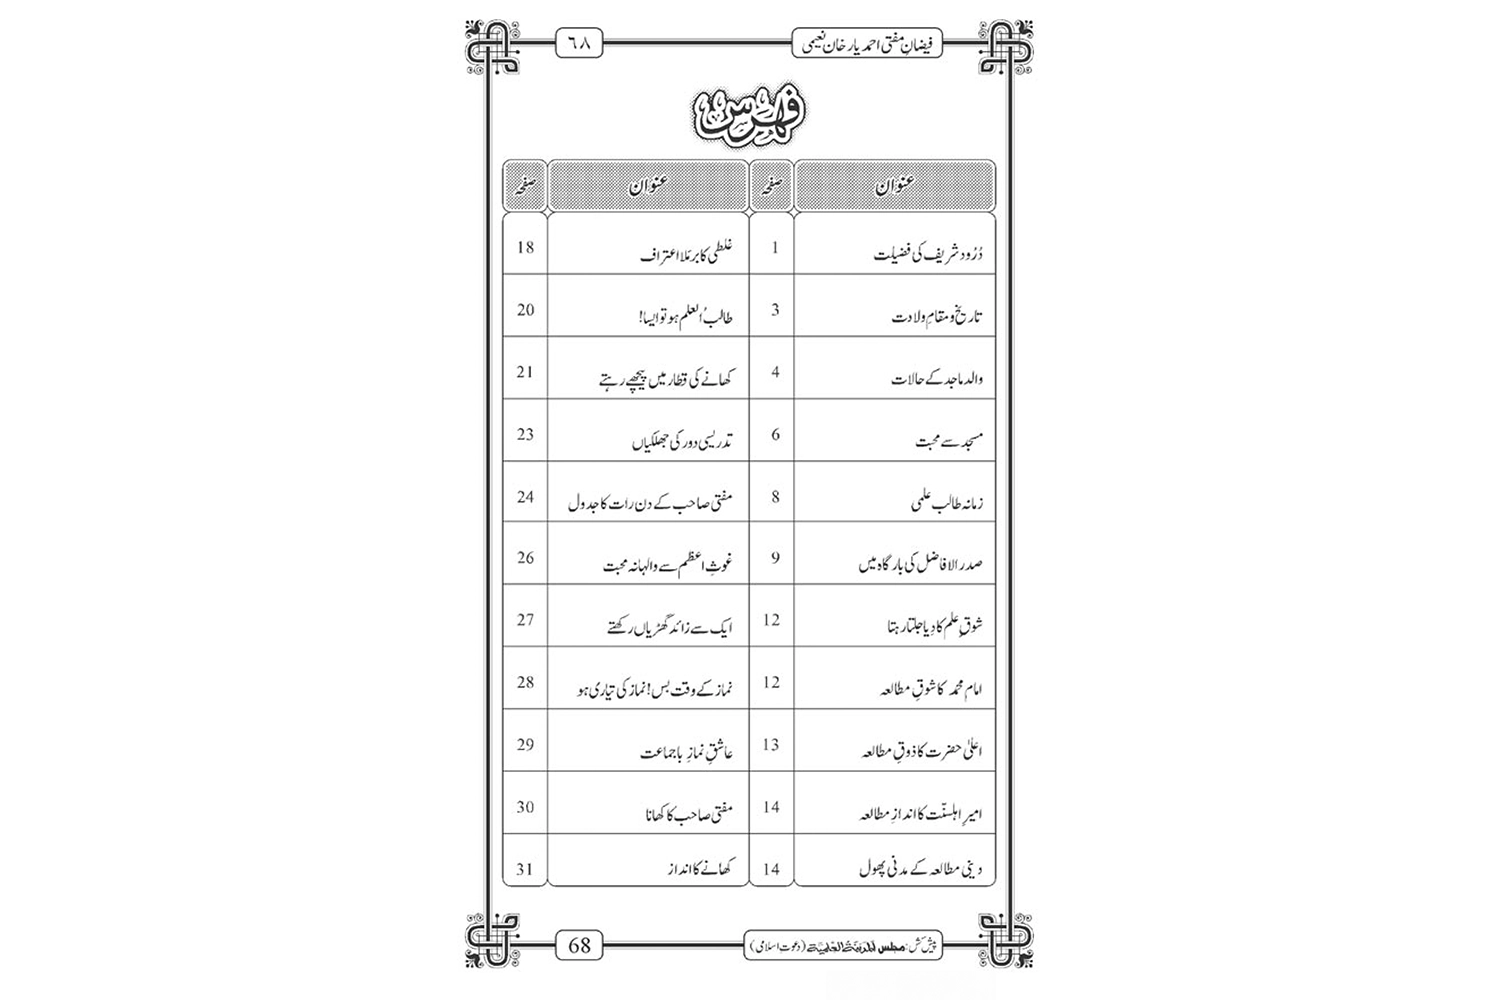 فیضانِ مفتی احمد یار خان نعیمی ٦٨
فہرس
عنوان صفحہ عنوان صفحہ
دُرُود شریف کی فضیلت 1 غلطی کا برملا اعتراف 18
تاریخ و مقامِ ولادت 3 طالبُ العلم ہو تو ایسا! 20
والد ماجد کے حالات 4 کھانے کی قطار میں پیچھے رہتے 21
مسجد سے محبت 6 تدریسی دور کی جھلکیاں 23
زمانہ طالب علمی 8 مفتی صاحب کے دن رات کا جدول 24
صدر الافاضل کی بارگاہ میں 9 غوثِ اعظم سے والہانہ محبت 26
شوقِ علم کا دِیا جلتا رہتا 12 ایک سے زائد گھڑیاں رکھتے 27
امام محمد کا شوقِ مطالعہ 12 نماز کے وقت بس! نماز کی تیاری ہو 28
اعلیٰ حضرت کا ذوقِ مطالعہ 13 عاشقِ نمازِ باجماعت 29
امیرِ اہلسنّت کا اندازِ مطالعہ 14 مفتی صاحب کا کھانا 30
دینی مطالعہ کے مدنی پھول 14 کھانے کا انداز 31
پیش کش: مجلس المدینۃ العلمیۃ (دعوتِ اسلامی) 68